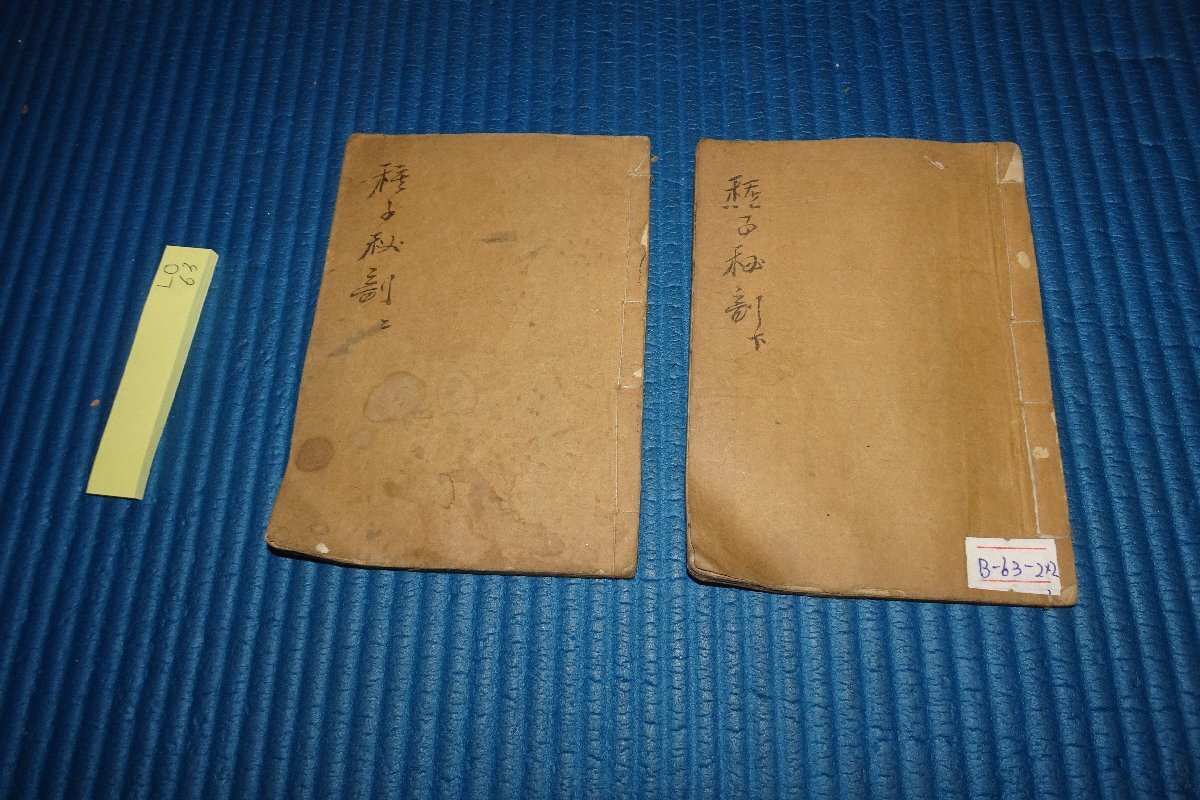 LO
63
種子秘剖二
種子秘剖下
B-63-2*2